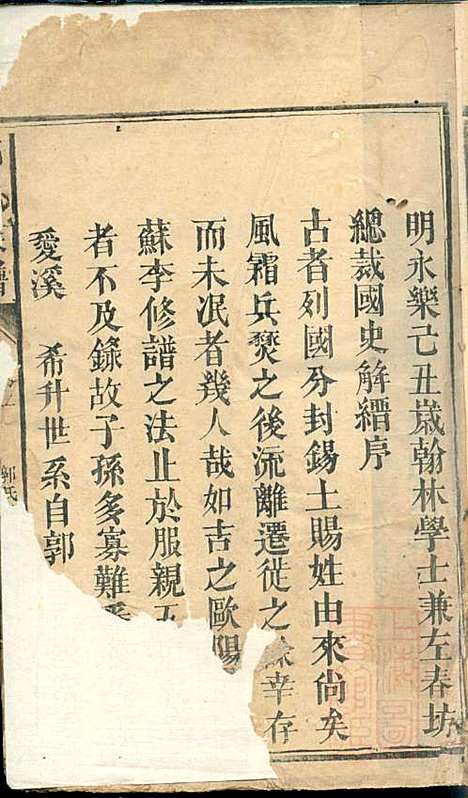 明永樂己丑嵗翰林學士兼左春坊
總裁國史解縉序
古者列國分封錫土賜姓由來尚矣
風霜兵燹之後流離遷徙之餘幸存
而未泯者幾人哉如古之歐陽
蘇李修譜之法止於服親五
者不及錄故子孫多寡難
愛溪 希升世系自郭
郭氏